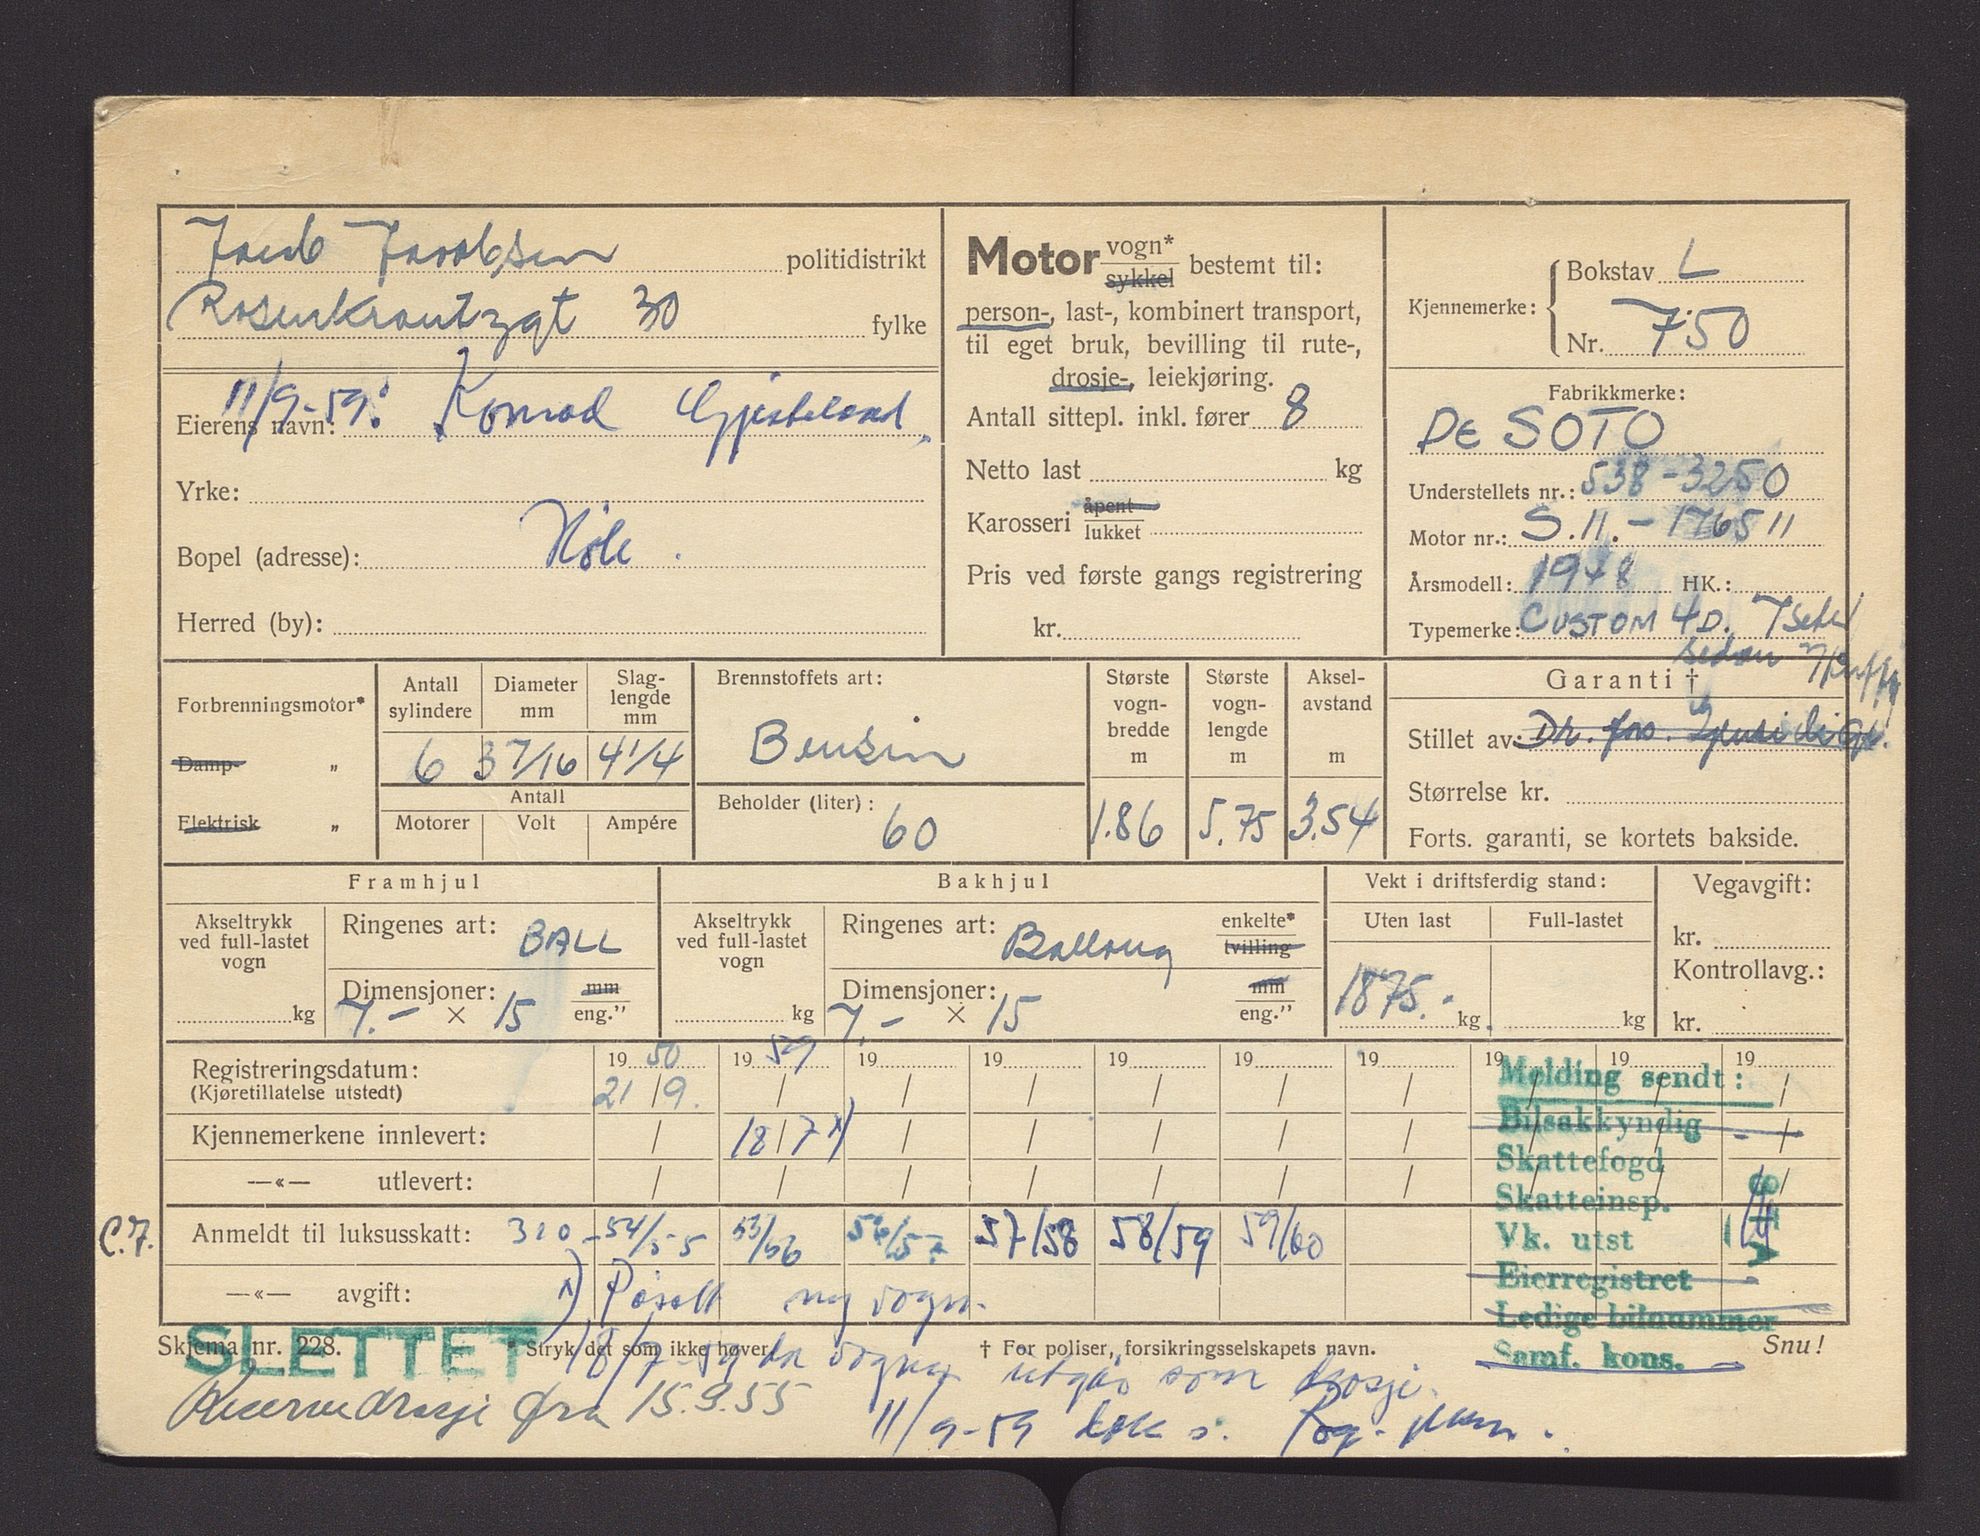 Jacob Jacobsen politidistrikt
Rosenkrantzgt 30 fylke
11/9-59: Konrad
Eierens navn:
Yrke:
Bopel (adresse): Høle.
Herred (by):
Motor vogn*
sykkel bestemt til:
person-, last-, kombinert transport,
til eget bruk, bevilling til rute-,
drosje-, leiekjøring.
Antall sittepl. inkl. fører 8
Netto last kg
Karosseri åpent
lukket
Pris ved første gangs registrering
kr.
Kjennemerke: Bokstav L
Nr. 750
Fabrikkmerke:
DE SOTO
Understellets nr.: 538-3250
Motor nr.: S.11.-176511
Årsmodell: 1948 HK.:
Typemerke: CUSTOM 4D. 7 seter
sedan
Forbrenningsmotor*
Damp- „
Elektrisk „
Antall sylindere
6
Diameter mm
3 7/16
Slaglengde mm
4 1/4
Antall
Motorer Volt Ampére
Brennstoffets art:
Bensin
Beholder (liter): 60
Største vognbredde m
1.86
Største vognlengde m
5.75
Akselavstand m
3.54
Garanti †
Stillet av: Dr. fors.
Størrelse kr.
Forts. garanti, se kortets bakside.
Framhjul
Akseltrykk ved full-lastet vogn
kg
Ringenes art: BALL
Dimensjoner: mm
7.- × 15 eng.”
Bakhjul
Akseltrykk ved full-lastet vogn
kg
Ringenes art: Ballong enkelte*
tvilling
Dimensjoner: mm
7.- × 15 eng.”
Vekt i driftsferdig stand:
Uten last Full-lastet
1875.- kg. kg
Vegavgift:
kr.
Kontrollavg.:
kr.
Registreringsdatum: 19 50 19 59 19 19 19 19 19 19 19 19
(Kjøretillatelse utstedt) 21/9. / / / / / / / / /
Kjennemerkene innlevert: / 18/7 x) / / / / / / / /
—«— utlevert: / / / / / / / / / /
C.7. Anmeldt til luksusskatt: 310 - 54/55 55/56 56/57 57/58 58/59 59/60
—«— avgift: x) Påsatt ny vogn.
Melding sendt:
Bilsakkyndig
Skattefogd
Skatteinsp.
Vk. utst
Eierregistret
Ledige bilnummer
Samf. kons.
Skjema nr. 228. * Stryk det som ikke høver. † For poliser, forsikringsselskapets navn. Snu!
SLETTET
18/7-59 da vognen utgår som drosje.
Reservedrosje fra 15.9.55
11/9-59